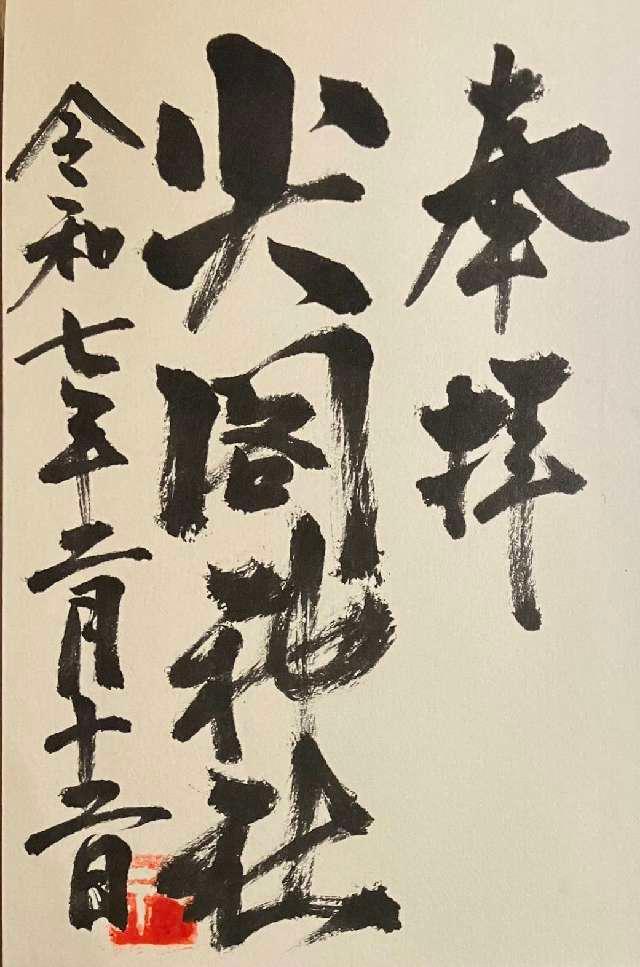 奉拝
尖閣神社
令和七年二月十二日